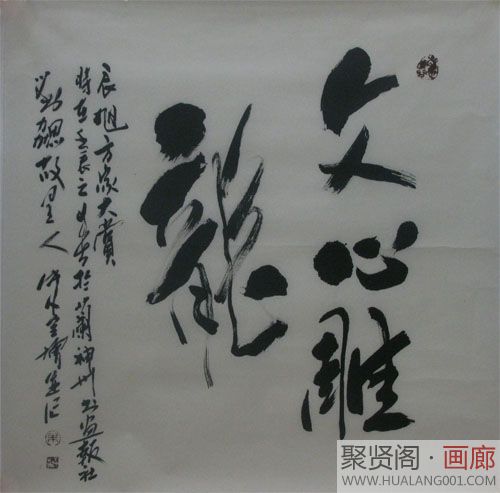 文心雕
龍
辰旭方家大賞
時在壬辰之春於蘭神州書畫報社
故里人
聚贤阁·画廊
WWW.HUALANG001.COM